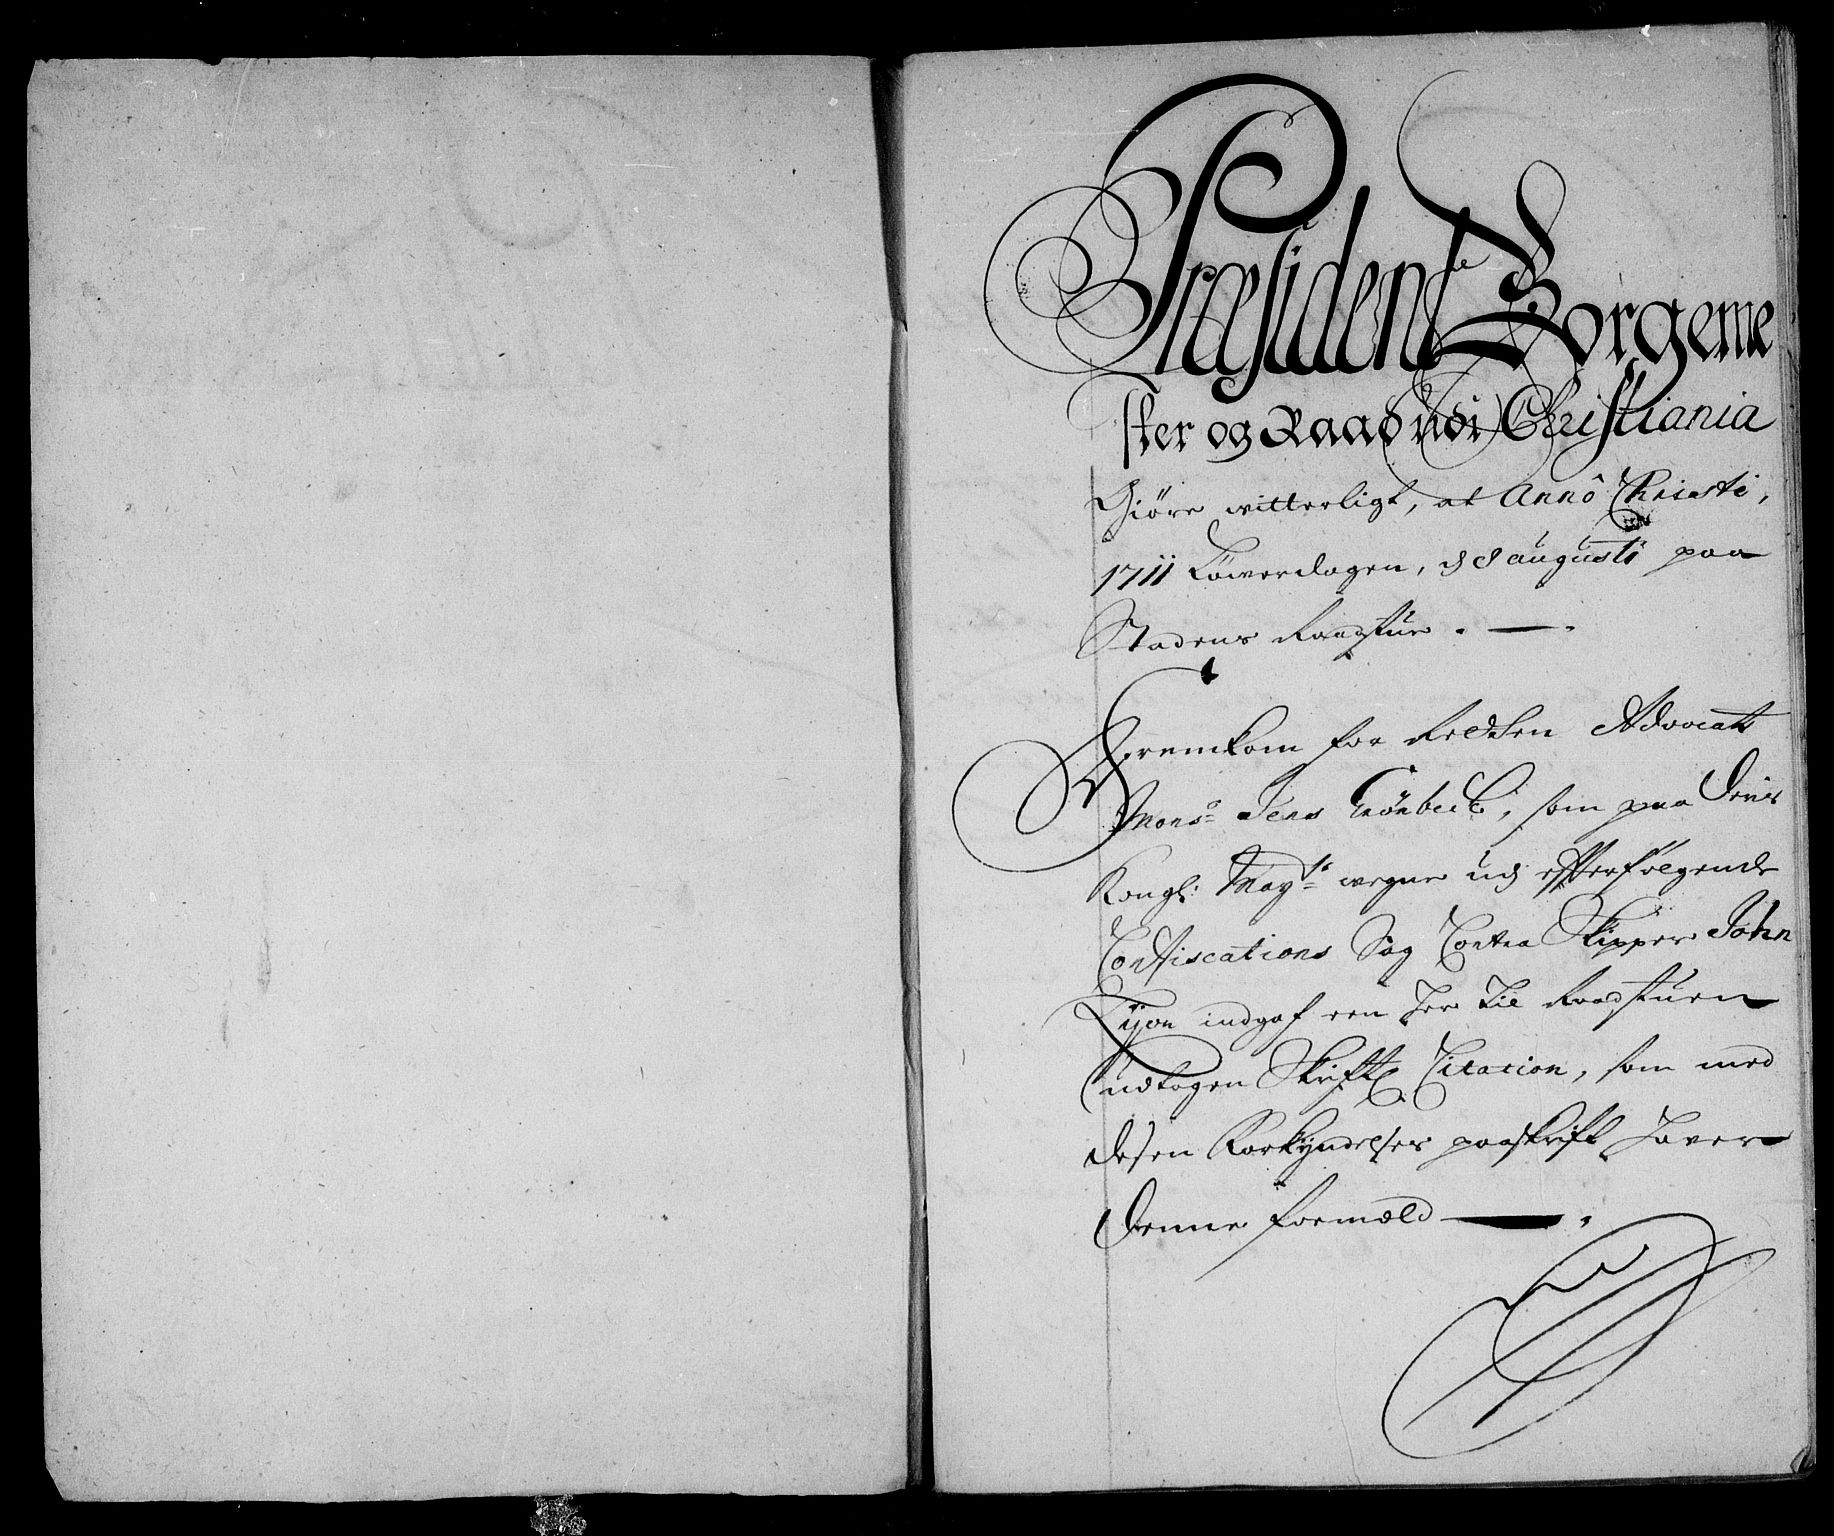 Præsident Borgeme
ster og Raad udi Christiania
Giöre witterligt, at Annô Christi,
1711 Löwerdagen, d 8 augusti paa
Stadens Raadstue.
Fremkom for Retten Advocat
Monsr Jens Grönbech, som paa Deris
Kongl: Mayts wegne ud efterfölgende
Confiscations Sag Contra Skipper John
Lyon indgaf een her til Raadstuen
udtagen Skriftl Citation, som med
desen Forkyndelses paaskrift haver
denne formæld